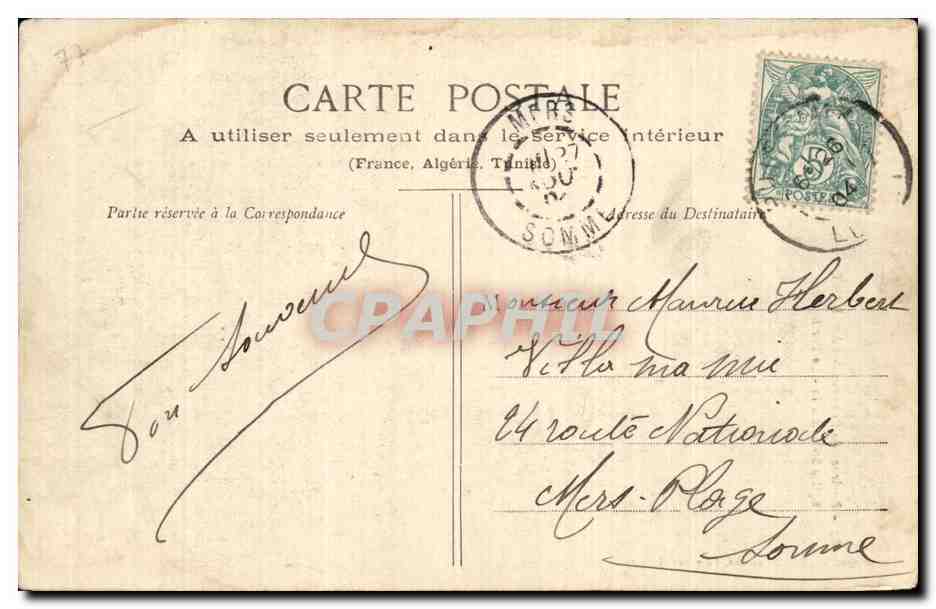 77
CARTE POSTALE
A utiliser seulement dans le service intérieur
(France, Algérie, Tunisie)
Partie réservée à la Correspondance
Adresse du Destinataire
MERS
27
SOMME
5
POSTES
26
04
Bon Souvenir
CPAPHIL
Monsieur Maurice Herbert
Villa ma mie
24 route Nationale
Mers-Plage
Somme